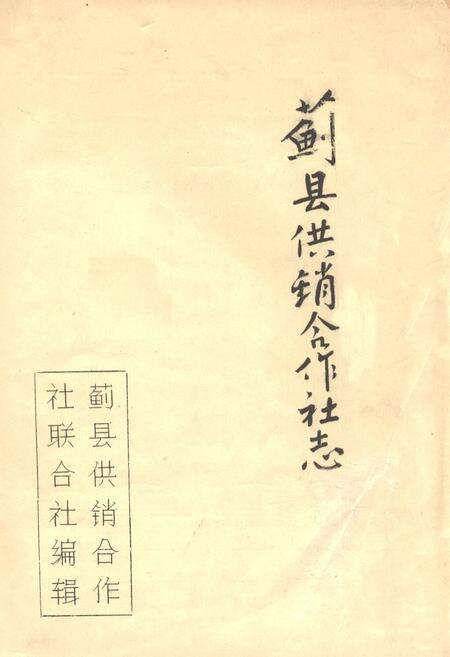 蓟县供销合作社志
蓟县供销合作
社联合社编辑